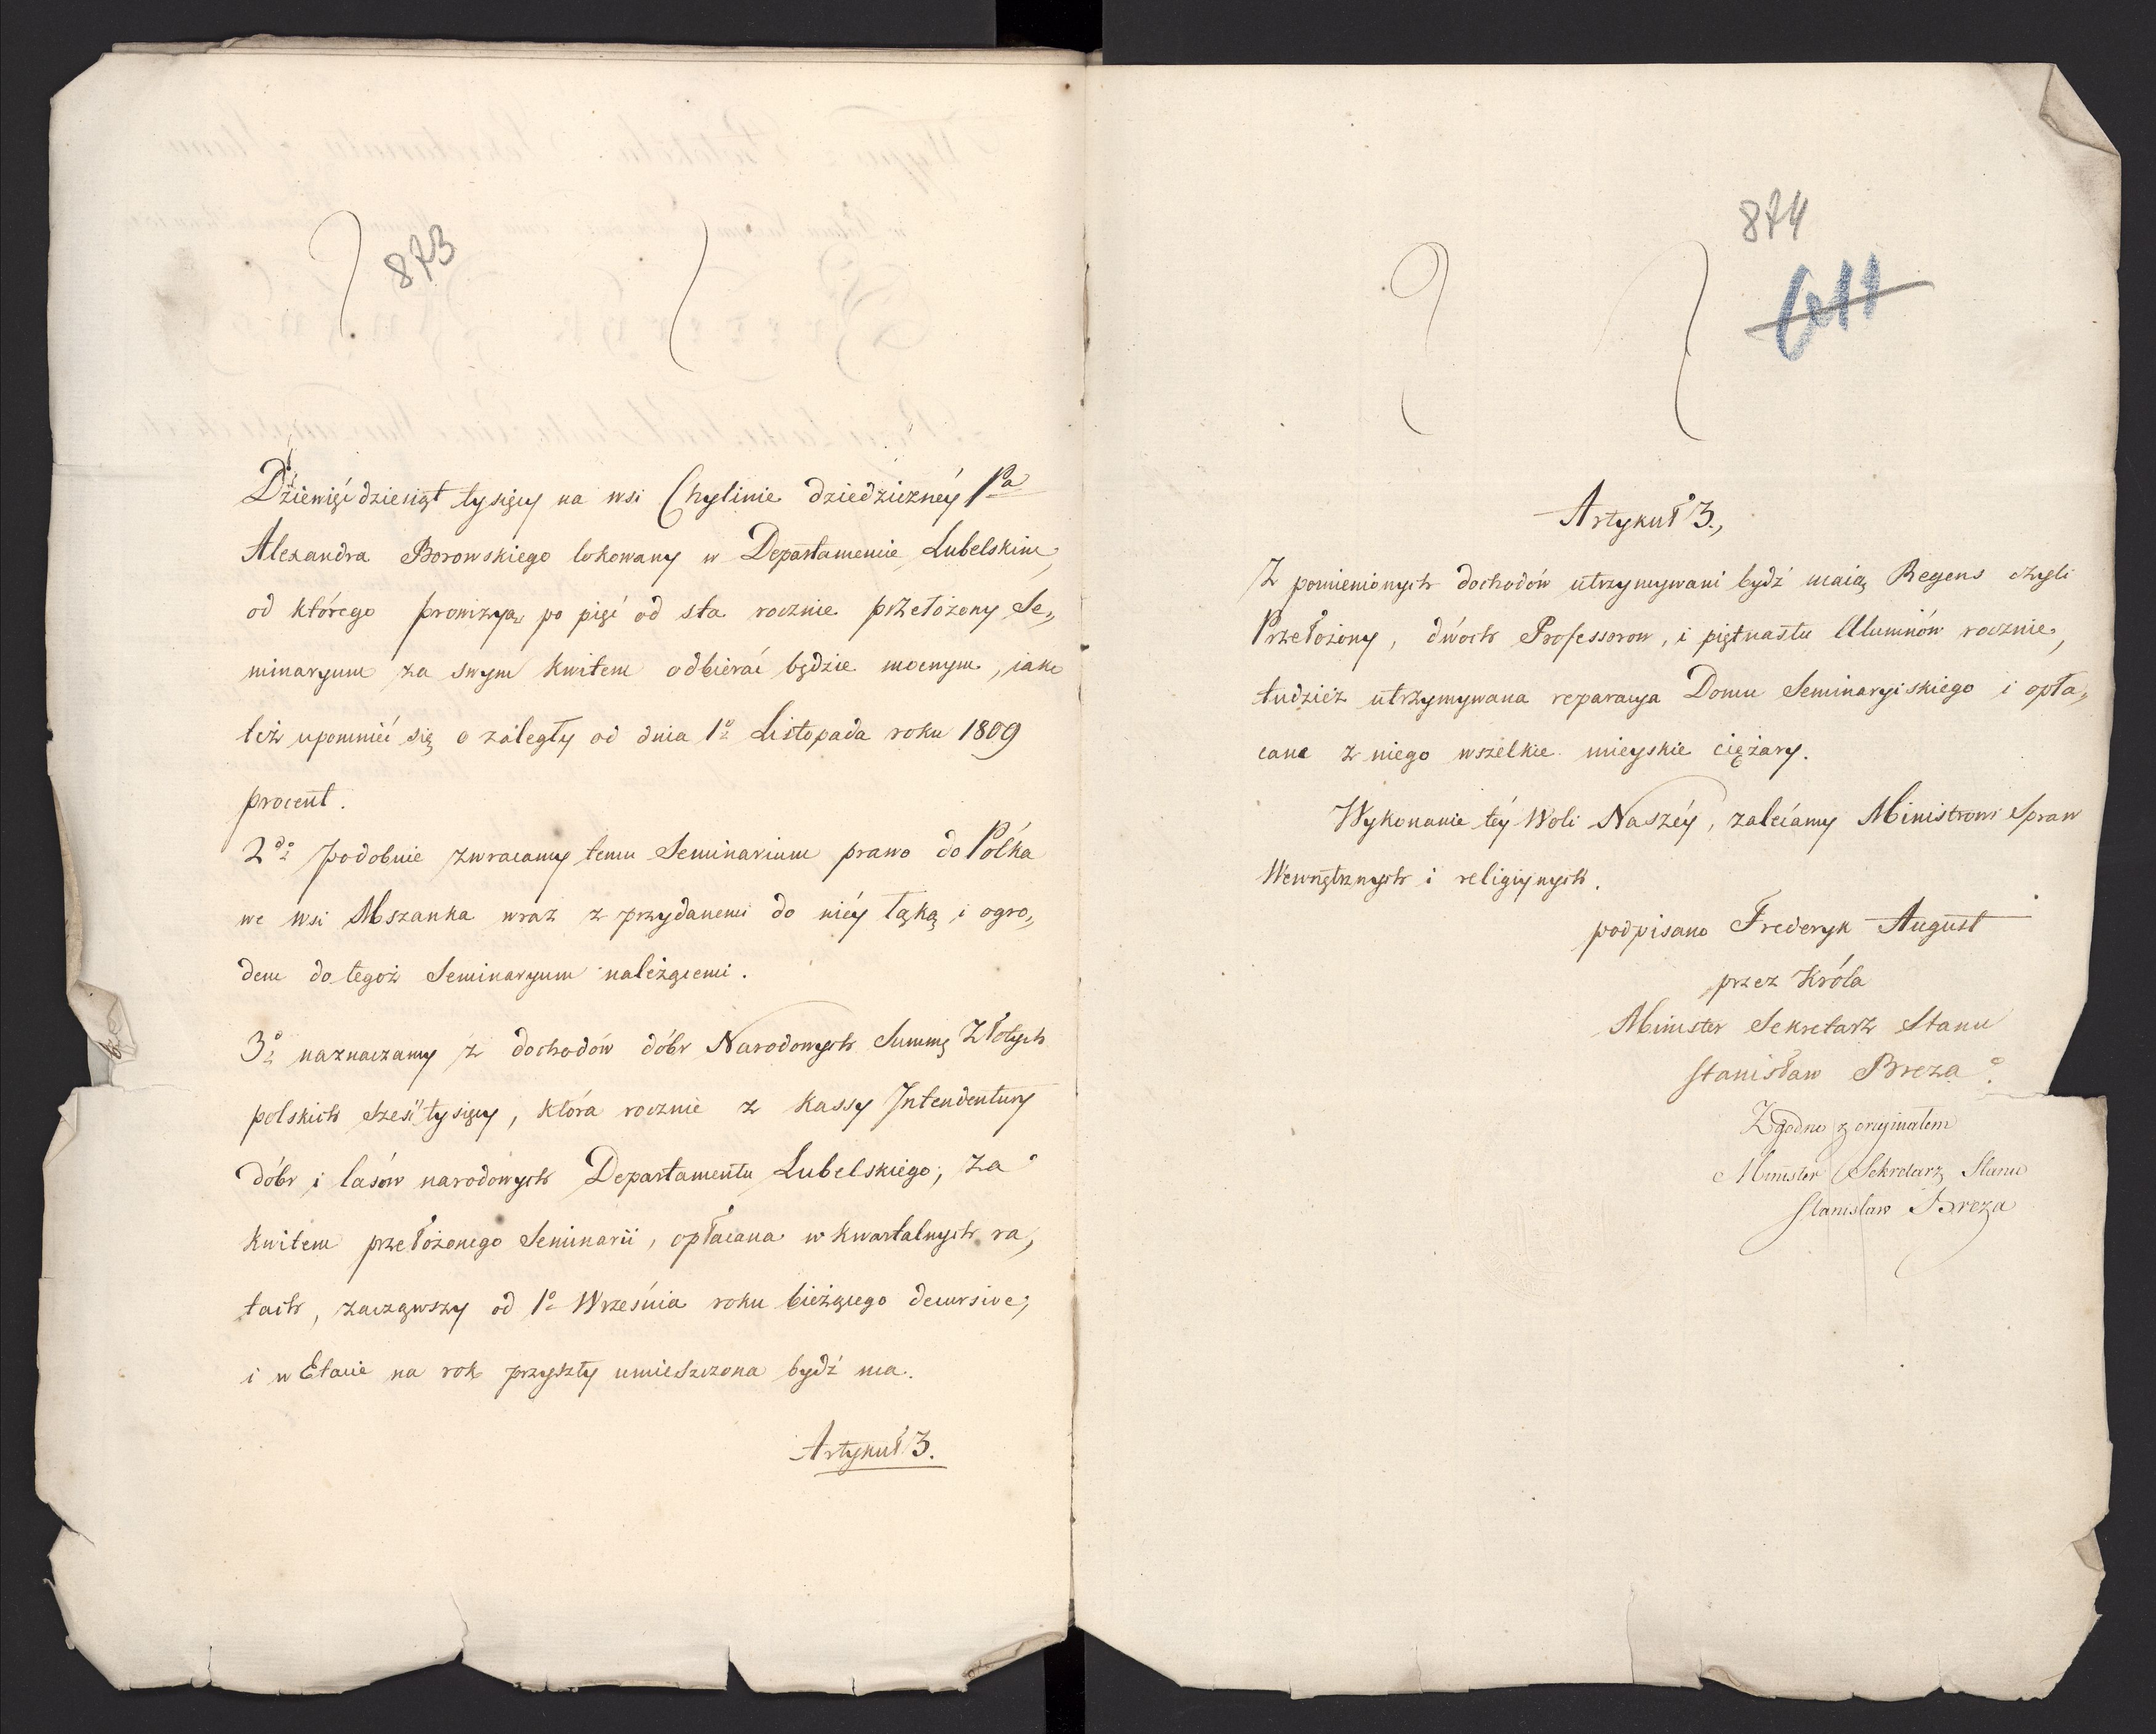 873
Dziewięćdziesiąt tysięcy na wsi Chylinie dziedziczney Pa
Alexandra Borowskiego lokowany w Departamencie Lubelskim,
od którego prowizyą po pięć od sta rocznie przełożony Se„
minaryum za swym kwitem odbierać będzie mocnym, iako
też upomnieć się o zaległy od dnia 1o Listopada roku 1809
procent.
2do Podobnie zwracamy temu Seminarium prawo do Pólka
we wsi Mszanka wraz z przydanemi do niéy łąką i ogro„
dem do tegoż Seminaryum należącemi.
3o naznaczamy z dochodów dóbr Narodowych Summę Złotych
polskich sześć tysięcy, która rocznie z Kassy Intendentury
dóbr i lasów narodowych Departamentu Lubelskiego, za
kwitem przełożonego Seminarii, opłacana w kwartalnych ra„
tach, zacząwszy od 1o Września roku bieżącego decursive;
i w Etacie na rok przyszły umieszczona bydź ma.
Artykuł 3.
874
Artykuł 3.,
Z pomienionych dochodów utrzymywani bydź maią Regens czyli
Przełożony, dwóch Professorow, i piętnastu Alumnów rocznie,
tudzież utrzymywana reparacya Domu Seminaryiskiego i opła„
cane z niego wszelkie mieyskie ciężary.
Wykonanie téy Woli Naszéy, zalécamy Ministrowi Spraw
Wewnętrznych i religiynych.
podpisano Frederyk August
przez Króla
Minister Sekretarz Stanu
Stanisław Breza.
Zgodno z oryginałem
Minister Sekretarz Stanu
Stanisław Breza